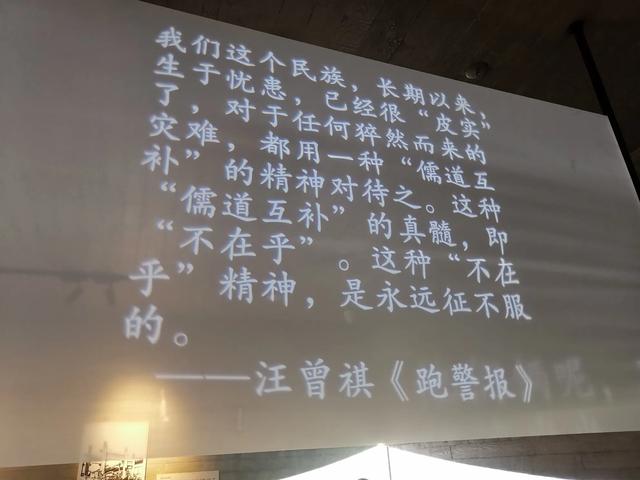 我们这个民族，长期以来，
生于忧患，已经很“皮实”
了，对于任何猝然而来的
灾难，都用一种“儒道互
补”的精神对待之。这种
“儒道互补”的真髓，即
“不在乎”。这种“不在
乎”精神，是永远征不服
的。
——汪曾祺《跑警报》